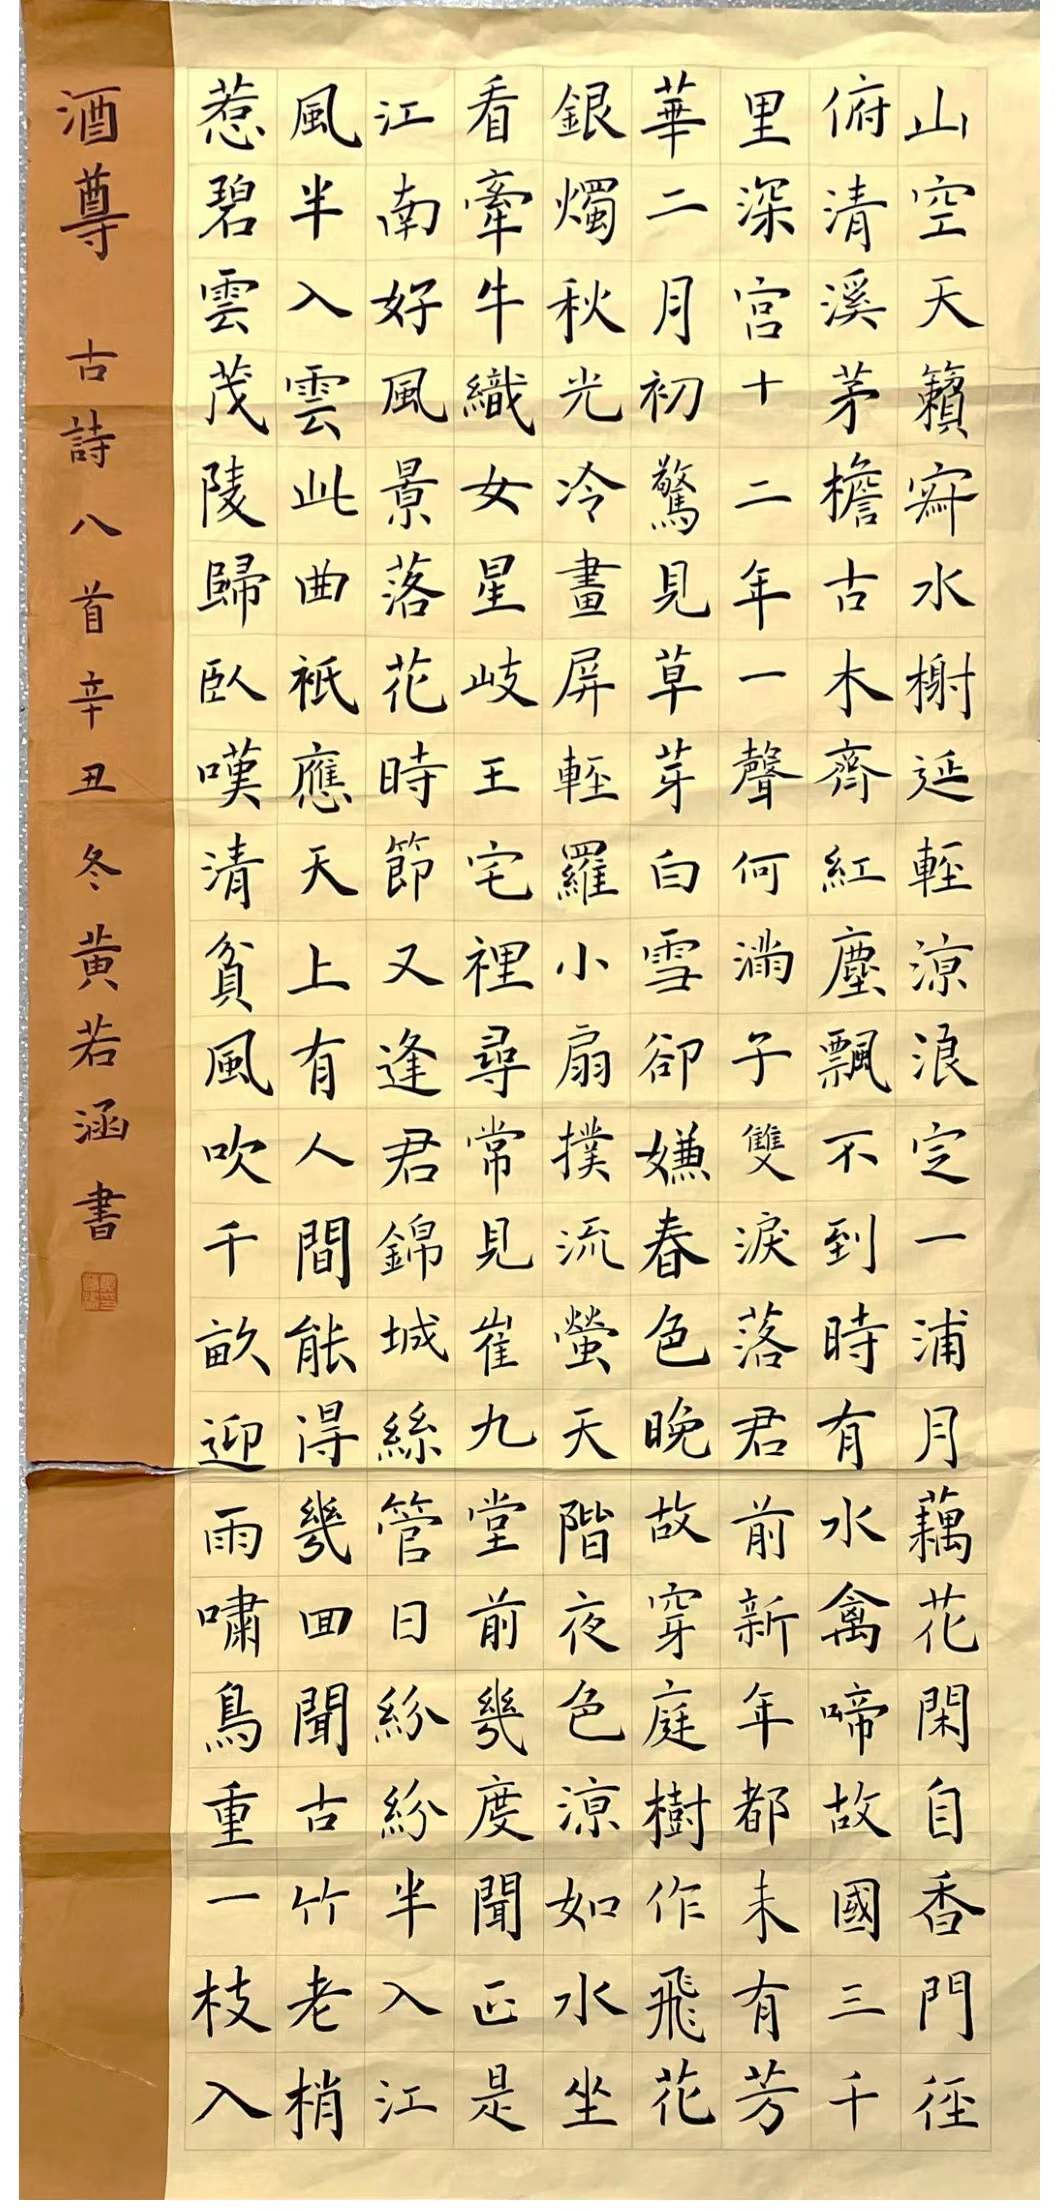 山空天籟寂水榭延輕涼浪定一浦月藕花閑自香門徑
俯清溪茅檐古木齊紅塵飄不到時有水禽啼故國三千
里深宮十二年一聲何滿子雙淚落君前新年都未有芳
華二月初驚見草芽白雪卻嫌春色晚故穿庭樹作飛花
銀燭秋光冷畫屏輕羅小扇撲流螢天階夜色涼如水坐
看牽牛織女星岐王宅裡尋常見崔九堂前幾度聞正是
江南好風景落花時節又逢君錦城絲管日紛紛半入江
風半入雲此曲祇應天上有人間能得幾回聞古竹老梢
惹碧雲茂陵歸臥嘆清貧風吹千畝迎雨嘯鳥重一枝入
酒尊 古詩八首辛丑冬黄若涵書